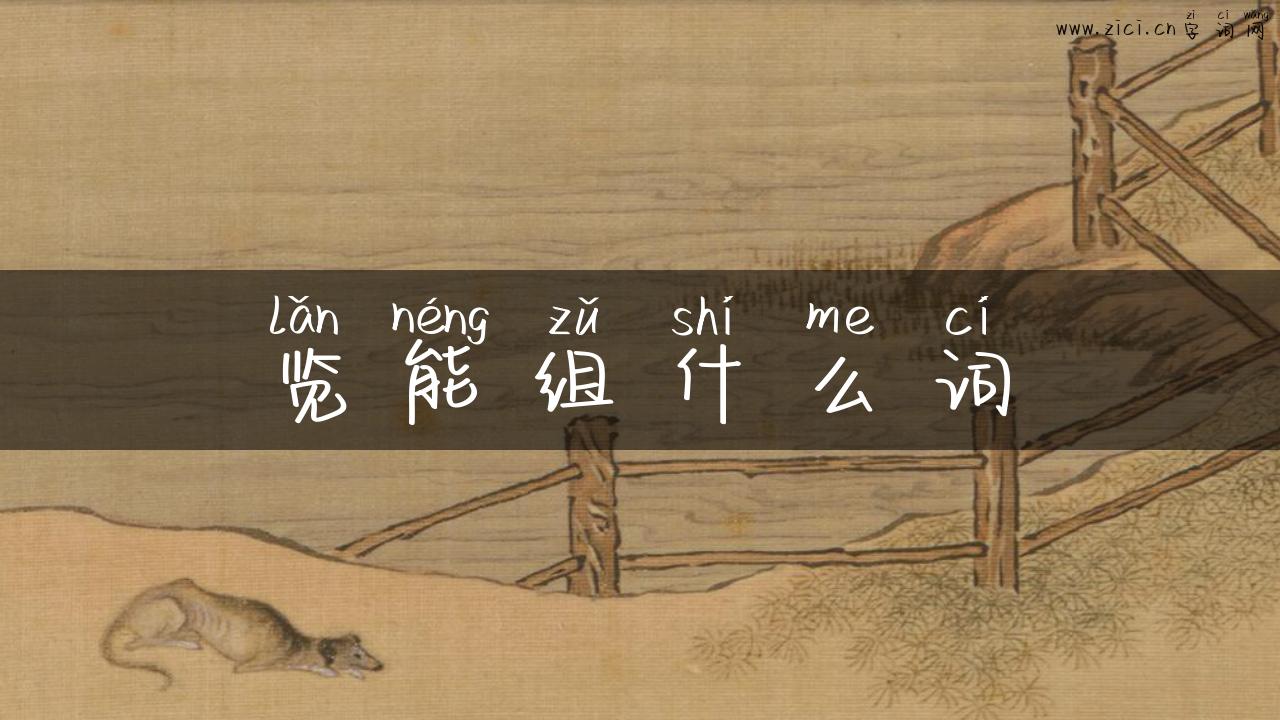 zì cí wǎng
www.zici.cn 字词网
lǎn néng zǔ shí me cí
览能组什么词